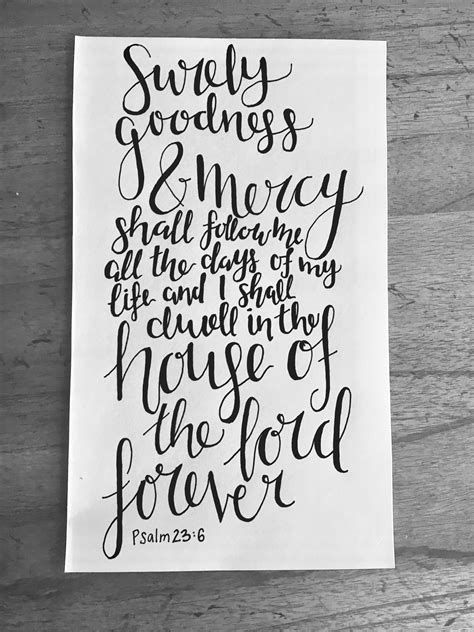 Surely
goodness
& mercy
shall follow me
all the days of my
life and I shall
dwell in the
house of
the lord
forever
Psalm 23:6